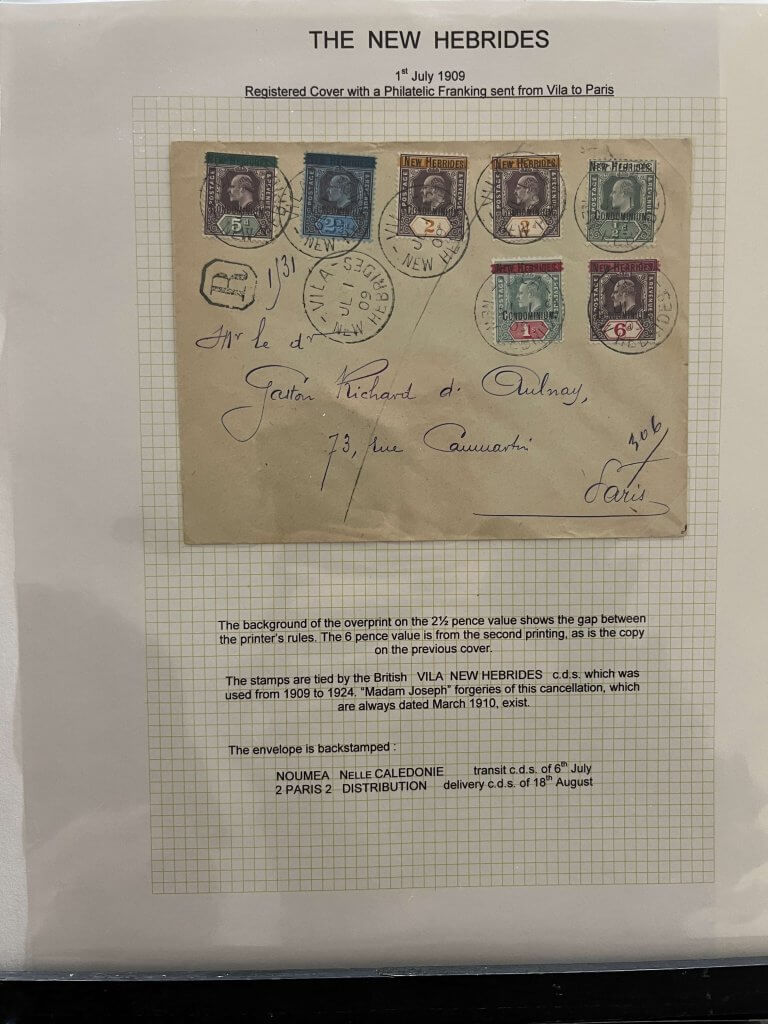 THE NEW HEBRIDES
1st July 1909
Registered Cover with a Philatelic Franking sent from Vila to Paris
NEW HEBRIDES NEW HEBRIDES NEW HEBRIDES
POSTAGE & REVENUE
5d 2½d 2d 2d ½d
CONDOMINIUM
NEW HEBRIDES NEW HEBRIDES
CONDOMINIUM
1d 6d
R 1/31
VILA
JL 1
09
NEW HEBRIDES
Mr le dr
Gaston Richard d'Aulnay,
73, rue Caumartin
306
Paris
The background of the overprint on the 2½ pence value shows the gap between
the printer's rules. The 6 pence value is from the second printing, as is the copy
on the previous cover.
The stamps are tied by the British VILA NEW HEBRIDES c.d.s. which was
used from 1909 to 1924. "Madam Joseph" forgeries of this cancellation, which
are always dated March 1910, exist.
The envelope is backstamped :
NOUMEA NELLE CALEDONIE transit c.d.s. of 6th July
2 PARIS 2 DISTRIBUTION delivery c.d.s. of 18th August